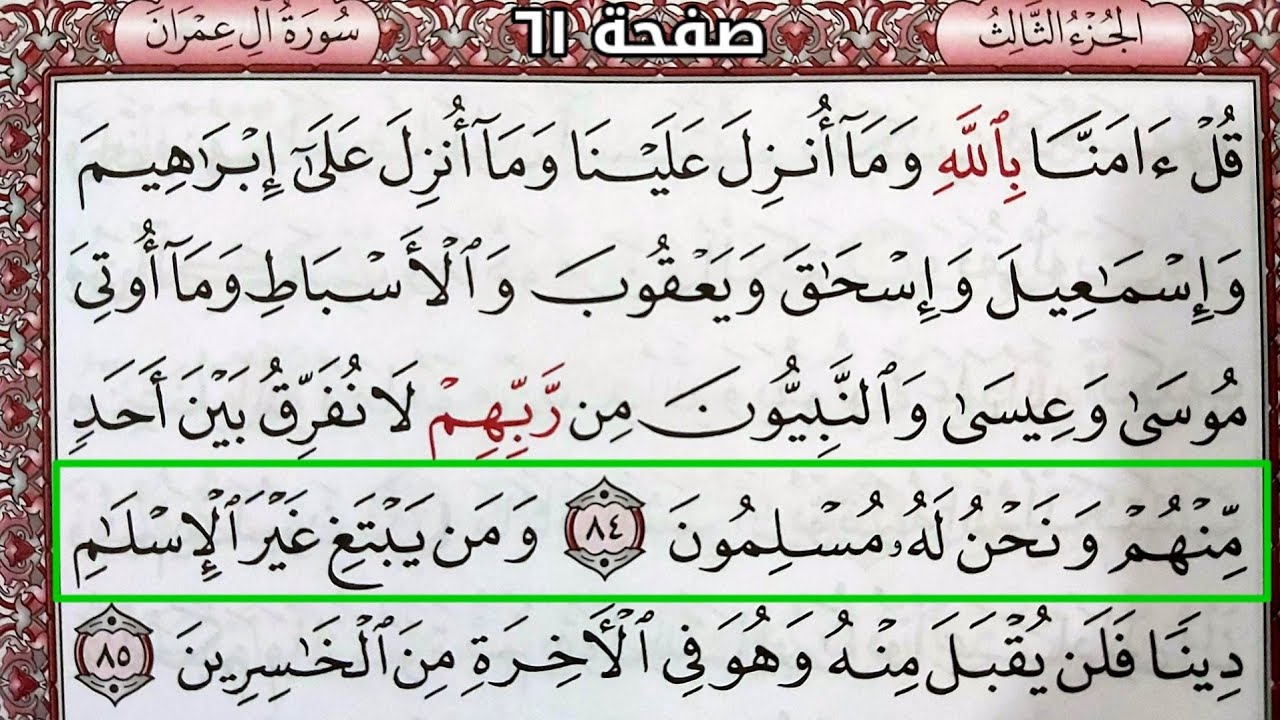 الجُزْءُ الثَّالِثُ صفحة ٦١ سُورَةُ آلِ عِمْرَانَ
قُلْ ءَامَنَّا بِٱللَّهِ وَمَآ أُنزِلَ عَلَيْنَا وَمَآ أُنزِلَ عَلَىٰٓ إِبْرَٰهِيمَ
وَإِسْمَٰعِيلَ وَإِسْحَٰقَ وَيَعْقُوبَ وَٱلْأَسْبَاطِ وَمَآ أُوتِىَ
مُوسَىٰ وَعِيسَىٰ وَٱلنَّبِيُّونَ مِن رَّبِّهِمْ لَا نُفَرِّقُ بَيْنَ أَحَدٍ
مِّنْهُمْ وَنَحْنُ لَهُۥ مُسْلِمُونَ ٨٤ وَمَن يَبْتَغِ غَيْرَ ٱلْإِسْلَٰمِ
دِينًا فَلَن يُقْبَلَ مِنْهُ وَهُوَ فِى ٱلْأَخِرَةِ مِنَ ٱلْخَٰسِرِينَ ٨٥